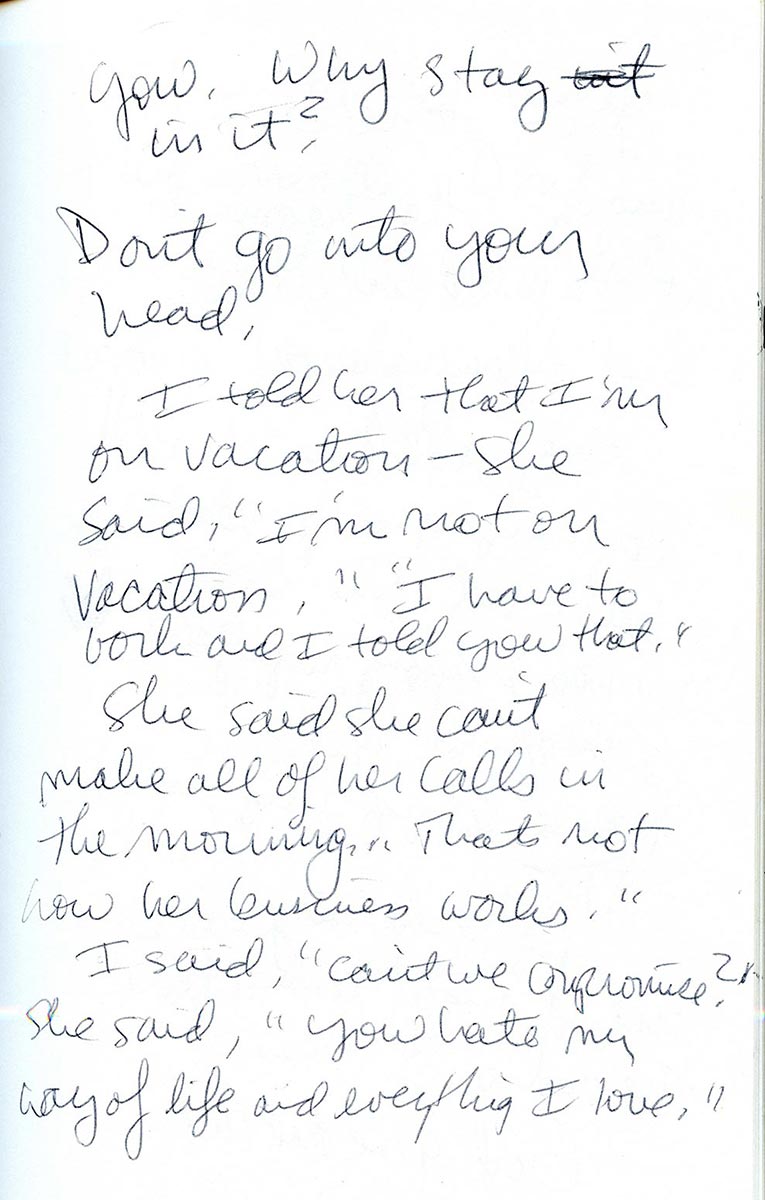 you. Why stay
in it?
Don't go into your
head,
I told her that I'm
on vacation – She
Said, "I'm not on
Vacation," "I have to
work and I told you that."
She said she can't
make all of her calls in
the morning... Thats not
how her business works."
I said, "can't we compromise?"
She said, "you hate my
way of life and everything I love,"